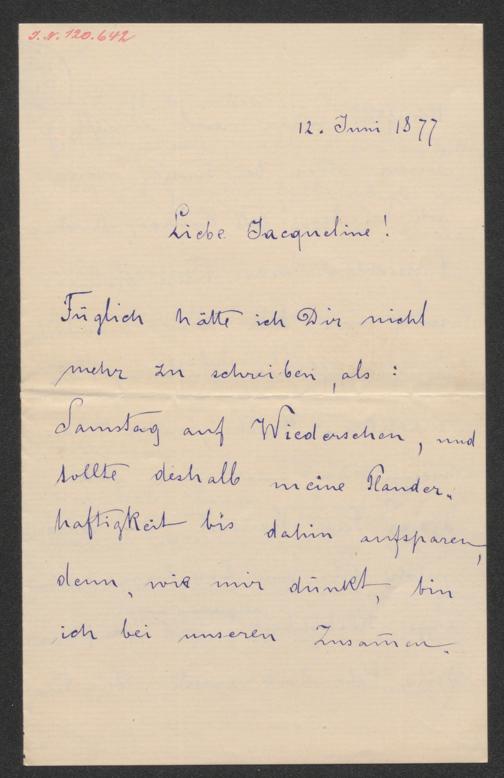 J. N. 120.642
12. Juni 1877
Liebe Jacqueline!
Füglich hätte ich Dir nicht
mehr zu schreiben, als:
Samstag auf Wiedersehen, und
sollte deshalb meine Plauder-
haftigkeit bis dahin aufsparen,
denn, wie mir dünkt, bin
ich bei unseren Zusam̄en-